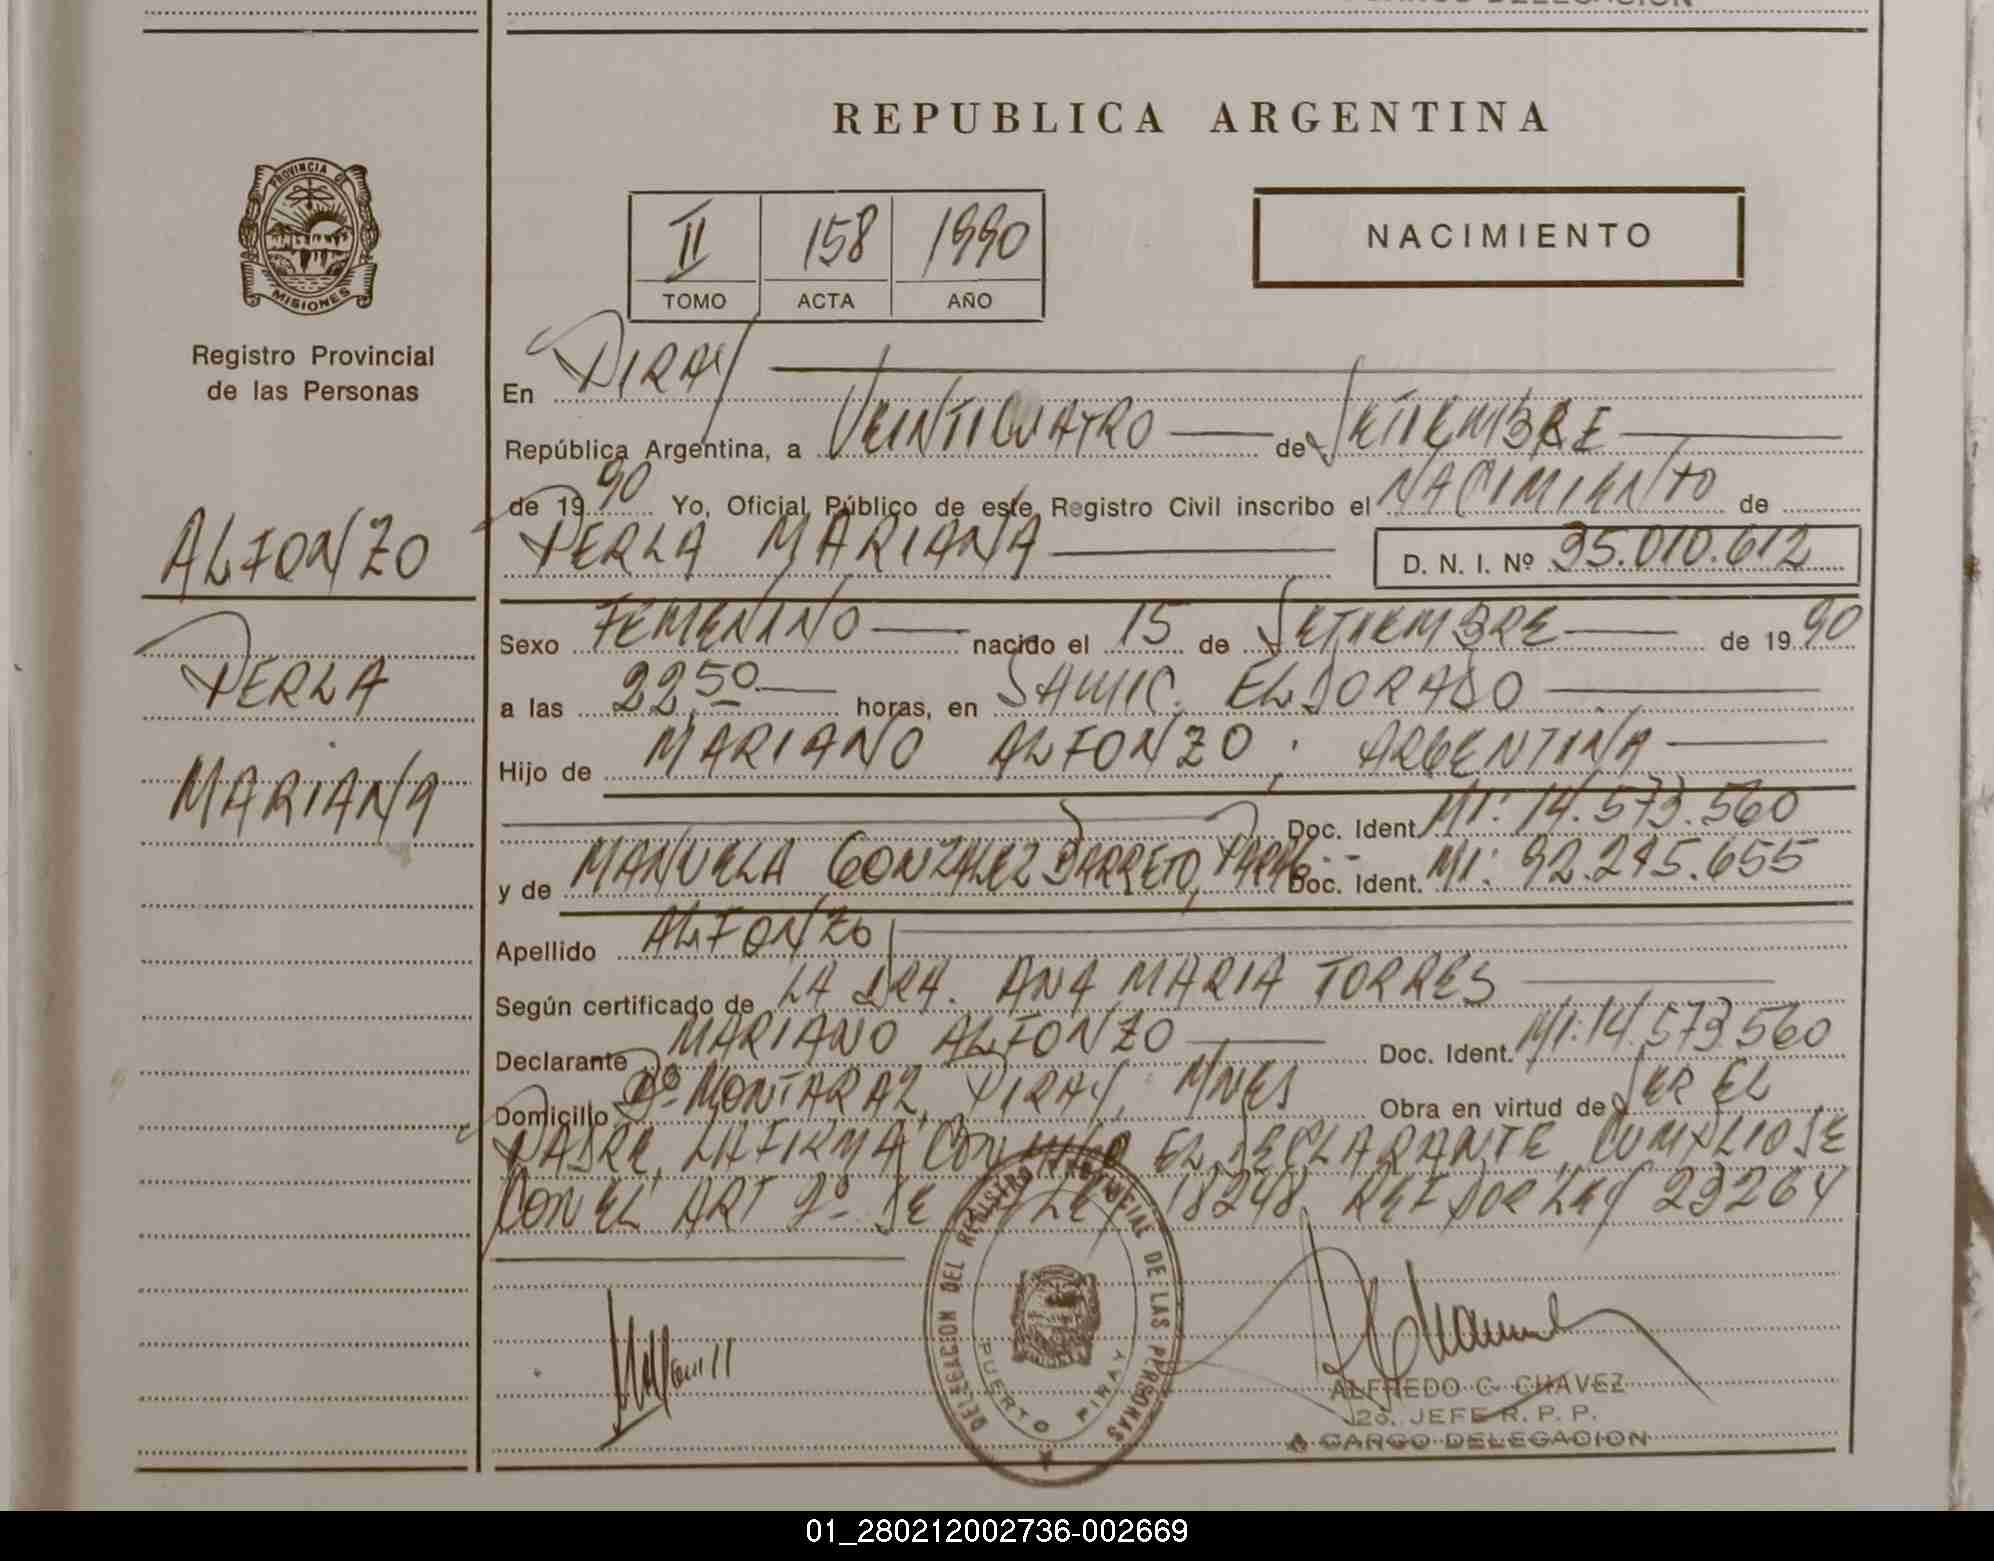 REPUBLICA ARGENTINA
PROVINCIA DE
MISIONES
Registro Provincial
de las Personas
II 158 1990
TOMO ACTA AÑO
NACIMIENTO
ALFONZO
PERLA
MARIANA
En PIRAY
República Argentina, a VEINTICUATRO de SETIEMBRE
de 1990 Yo, Oficial Público de este Registro Civil inscribo el NACIMIENTO de
PERLA MARIANA D. N. I. Nº 35.010.612
Sexo FEMENINO nacido el 15 de SETIEMBRE de 1990
a las 22,50 horas, en SAMIC. ELDORADO
Hijo de MARIANO ALFONZO, ARGENTINA
Doc. Ident. MI: 14.573.560
y de MANUELA GONZALEZ BARRETO, Doc. Ident. MI: 92.245.655
Apellido ALFONZO
Según certificado de LA DRA. ANA MARIA TORRES
Declarante MARIANO ALFONZO Doc. Ident. MI: 14.573560
Domicilio Bº MONTARAZ, PIRAY, MNES Obra en virtud de SER EL
PADRE, LA FIRMA CONMIGO EL DECLARANTE, CUMPLIOSE
CON EL ART 2º DE LA LEY 18248, REF POR LEY 23264
DELEGACION DEL REGISTRO PROVINCIAL DE LAS PERSONAS
PUERTO PIRAY
ALFREDO C. CHAVEZ
2o. JEFE R. P. P.
A CARGO DELEGACION
01_280212002736-002669